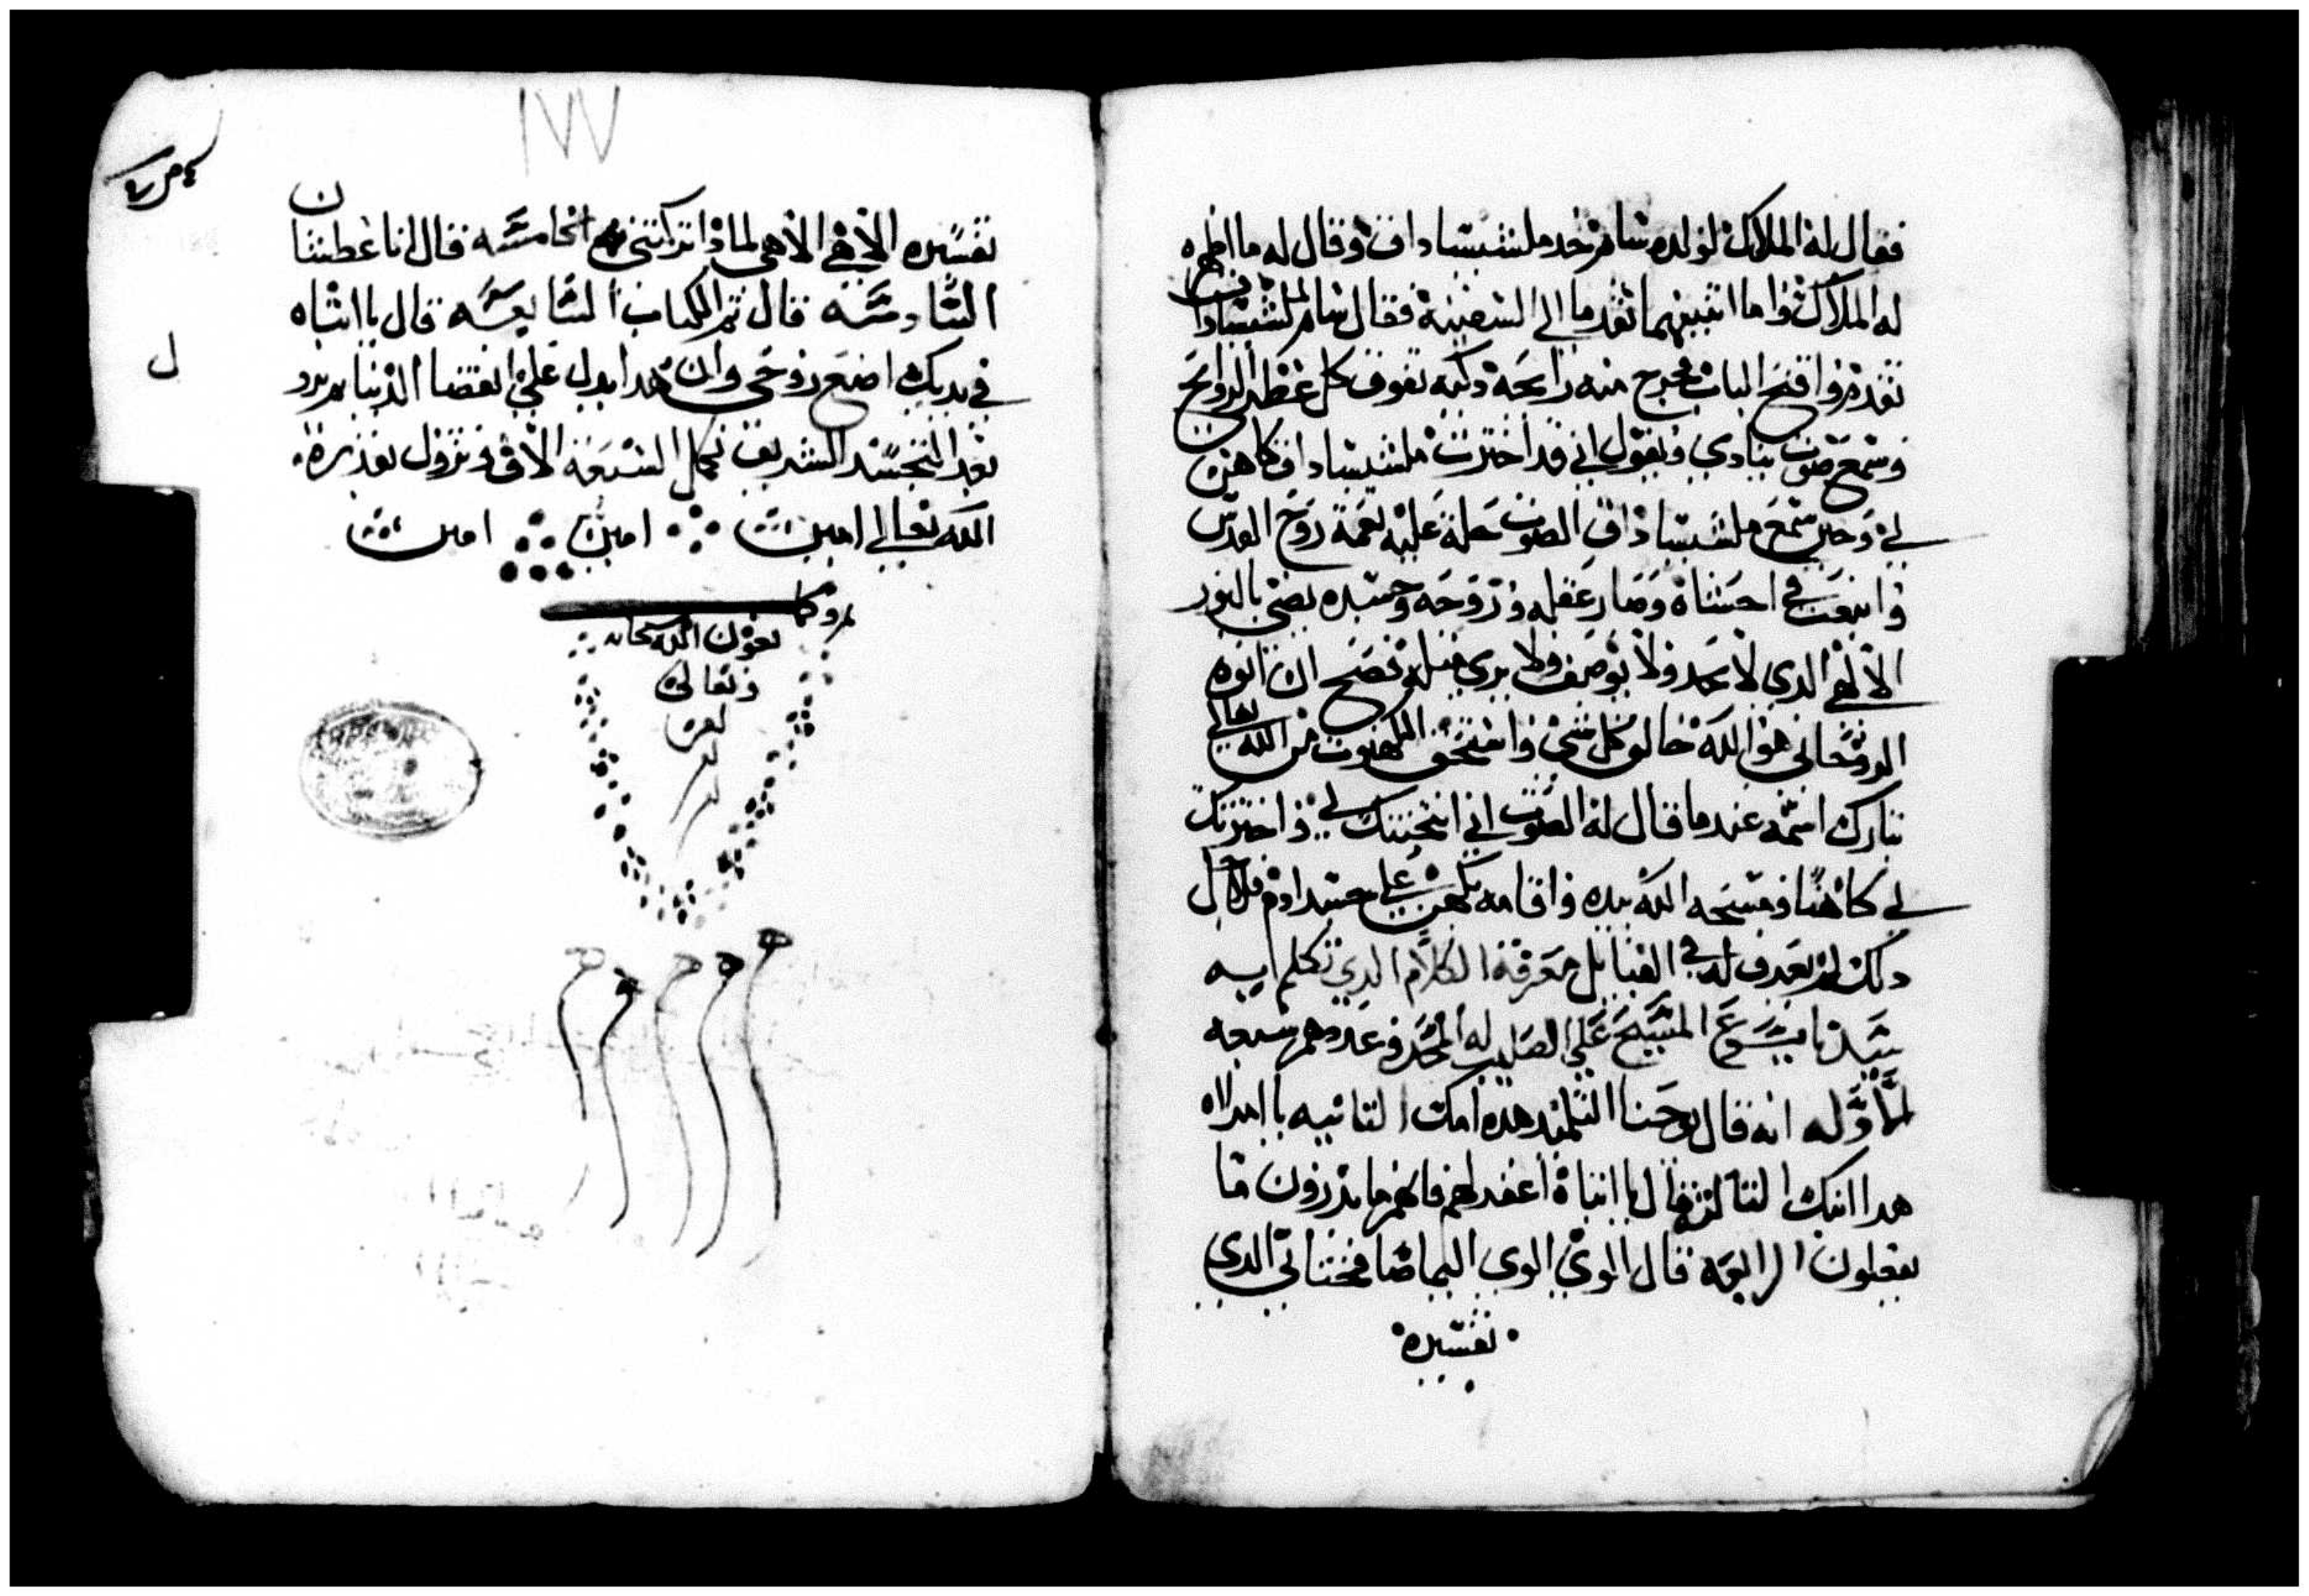 فقال له الملاك لولده سام خد ملشيساداق وقال له ما اظهره
له الملاك واما اتنينهما تقدما الى السفينة فقال سام لملشيساداق
تقدم وافتح الباب فخرج منه رايحة دكيه تفوق كل عظم الروايح
وسمع صوت ينادي ويقول اني قد اخترت ملشيساداق كاهن
لي وحين سمع ملشيساداق الصوت حلة عليه نعمة روح القدس
وانبعت في احشاه وصار عقله وروحه وجسده يضي بالنور
الالهي الدي لا يحد ولا يوصف ولا يرى مثله وتصح ان ابوه
الروحاني هو الله خالق كل شي واستحق الكهنوت من الله تعالى
تبارك اسمه عندما قال له الصوت اني انتخبتك لي واخترتك
لي كاهنا ومسحه الله بيده واقامه يكهن على جسد ادم فلاجل
دلك لم يعرف له في القبايل معرفة الكلام الدي تكلم ايسه
سيدنا يسوع المسيح على الصليب له المجد وعددهم سبعه
الاوله انه قال يوحنا التلميد هده امك التانيه يا امراه
هدا ابنك التالته قال يا ابتاه اغفر لهم فانهم ما يدرون ما
يفعلون الرابعه قال الوي الوي اليما صافختاني الدي
تفسيره
١٧٧
تفسيره الاهي الاهي لماذا تركتني الخامسه قال انا عطشان
السادسه قال تم الكتاب السابعه قال يا ابتاه
في يديك اضع روحي وان هدا يدل على انقضا الدنيا
بعد التجسد الشريف تكمل السبعة الاف وتزول بقدرة
الله تعالى امين امين امين
بعون الله سبحانه
وتعالى
ل